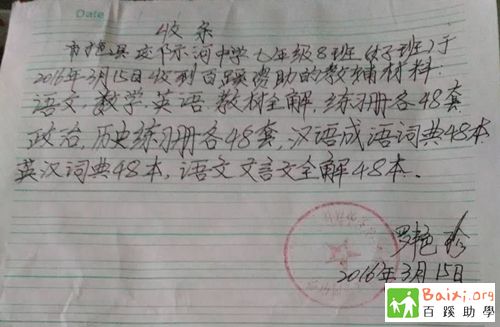 Date
收条
县 中学七年级8班(才子班)于
2016年3月15日收到百蹊资助的教辅材料.
语文,数学,英语,教材全解,练习册各48套
政治,历史练习册各48套,汉语成语词典48本
英汉词典48本,语文文言文全解48本.
罗艳珍
2016年3月15日
Baixi.org
百蹊助學